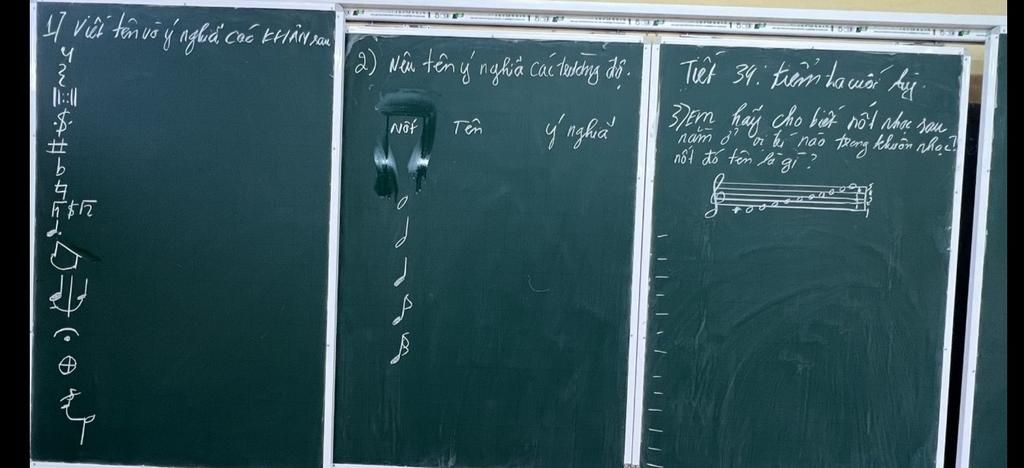 1) Viết tên và ý nghĩa các KHÂN sau
2) Nêu tên ý nghĩa các trường độ.
Nốt Tên ý nghĩa
Tiết 34: Kiểm tra cuối kỳ.
3) Em hãy cho biết nốt nhạc sau
nằm ở vị trí nào trong khuôn nhạc?
nốt đó tên là gì?